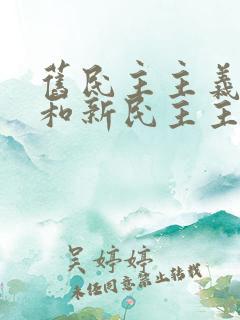 舊民主主義
和新民主主
吴婷婷
未经同意禁止转载